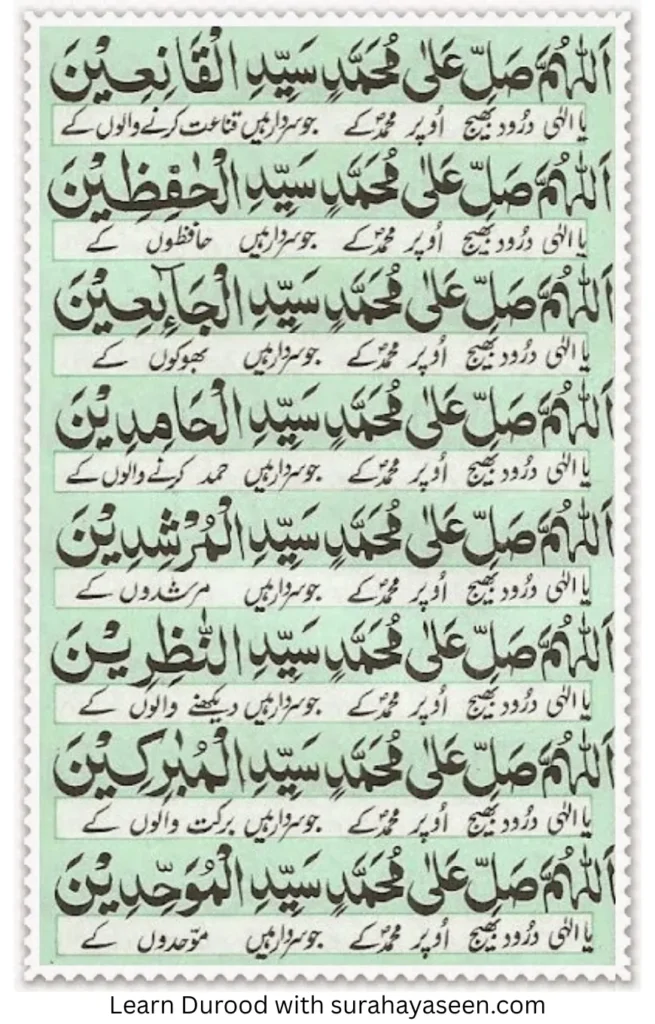 اَللّٰهُمَّ صَلِّ عَلٰى مُحَمَّدٍ سَيِّدِ الْقَانِعِيْنَ
يا الٰہی درُود بھیج اُوپر محمدؐ کے جو سردار ہیں قناعت کرنے والوں کے
اَللّٰهُمَّ صَلِّ عَلٰى مُحَمَّدٍ سَيِّدِ الْحٰفِظِيْنَ
يا الٰہی درُود بھیج اُوپر محمدؐ کے جو سردار ہیں حافظوں کے
اَللّٰهُمَّ صَلِّ عَلٰى مُحَمَّدٍ سَيِّدِ الْجَآئِعِيْنَ
يا الٰہی درُود بھیج اُوپر محمدؐ کے جو سردار ہیں بھوکوں کے
اَللّٰهُمَّ صَلِّ عَلٰى مُحَمَّدٍ سَيِّدِ الْحَامِدِيْنَ
يا الٰہی درُود بھیج اُوپر محمدؐ کے جو سردار ہیں حمد کرنے والوں کے
اَللّٰهُمَّ صَلِّ عَلٰى مُحَمَّدٍ سَيِّدِ الْمُرْشِدِيْنَ
يا الٰہی درُود بھیج اُوپر محمدؐ کے جو سردار ہیں مرشدوں کے
اَللّٰهُمَّ صَلِّ عَلٰى مُحَمَّدٍ سَيِّدِ النّٰظِرِيْنَ
يا الٰہی درُود بھیج اُوپر محمدؐ کے جو سردار ہیں دیکھنے والوں کے
اَللّٰهُمَّ صَلِّ عَلٰى مُحَمَّدٍ سَيِّدِ الْمُبٰرَكِيْنَ
يا الٰہی درُود بھیج اُوپر محمدؐ کے جو سردار ہیں برکت والوں کے
اَللّٰهُمَّ صَلِّ عَلٰى مُحَمَّدٍ سَيِّدِ الْمُوَحِّدِيْنَ
يا الٰہی درُود بھیج اُوپر محمدؐ کے جو سردار ہیں موّحدوں کے
Learn Durood with surahayaseen.com